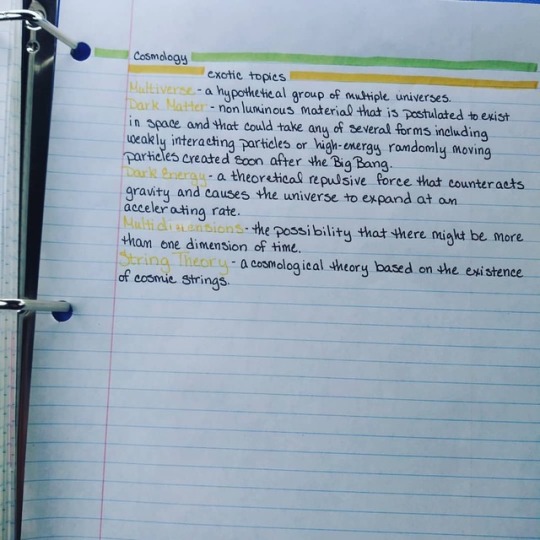 Cosmology
exotic topics
Multiverse - a hypothetical group of multiple universes.
Dark Matter - nonluminous material that is postulated to exist
in space and that could take any of several forms including
weakly interacting particles or high-energy randomly moving
particles created soon after the Big Bang.
Dark Energy - a theoretical repulsive force that counteracts
gravity and causes the universe to expand at an
accelerating rate.
Multidimensions - the possibility that there might be more
than one dimension of time.
String Theory - a cosmological theory based on the existence
of cosmic strings.